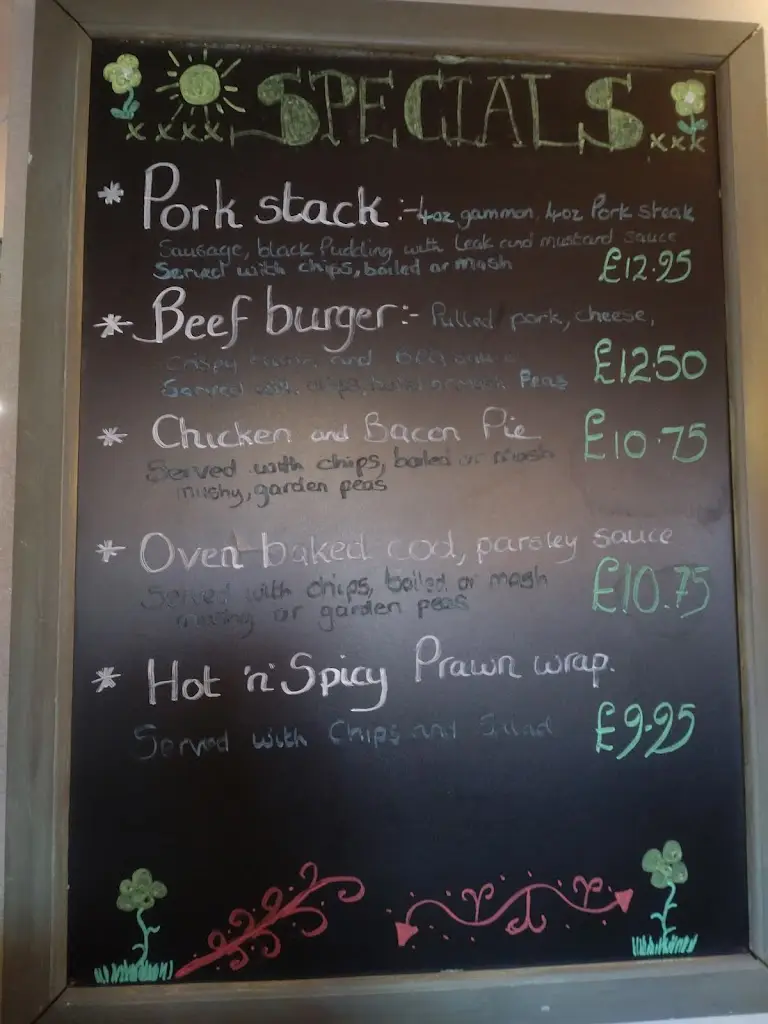 xxxx SPECIALS xxx
* Pork stack :- 4oz gammon, 4oz Pork steak
Sausage, black Pudding with Leak and mustard sauce
Served with chips, boiled or mash £12.95
* Beef burger:- Pulled pork, cheese,
crispy and BBQ £12.50
Served with chips, Peas
* Chicken and Bacon Pie £10.75
Served with chips, boiled or mash
mushy, garden peas
* Oven baked cod, parsley sauce
Served with chips, boiled or mash £10.75
mushy or garden peas
* Hot 'n' Spicy Prawn wrap.
Served with Chips and Salad £9.95